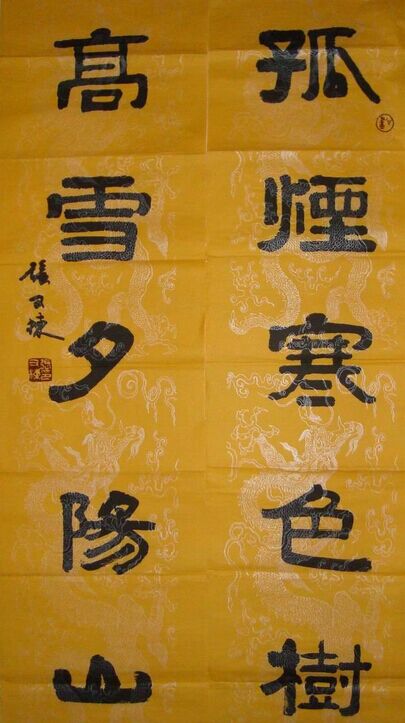 孤煙寒色樹
高雪夕陽山
張又棟